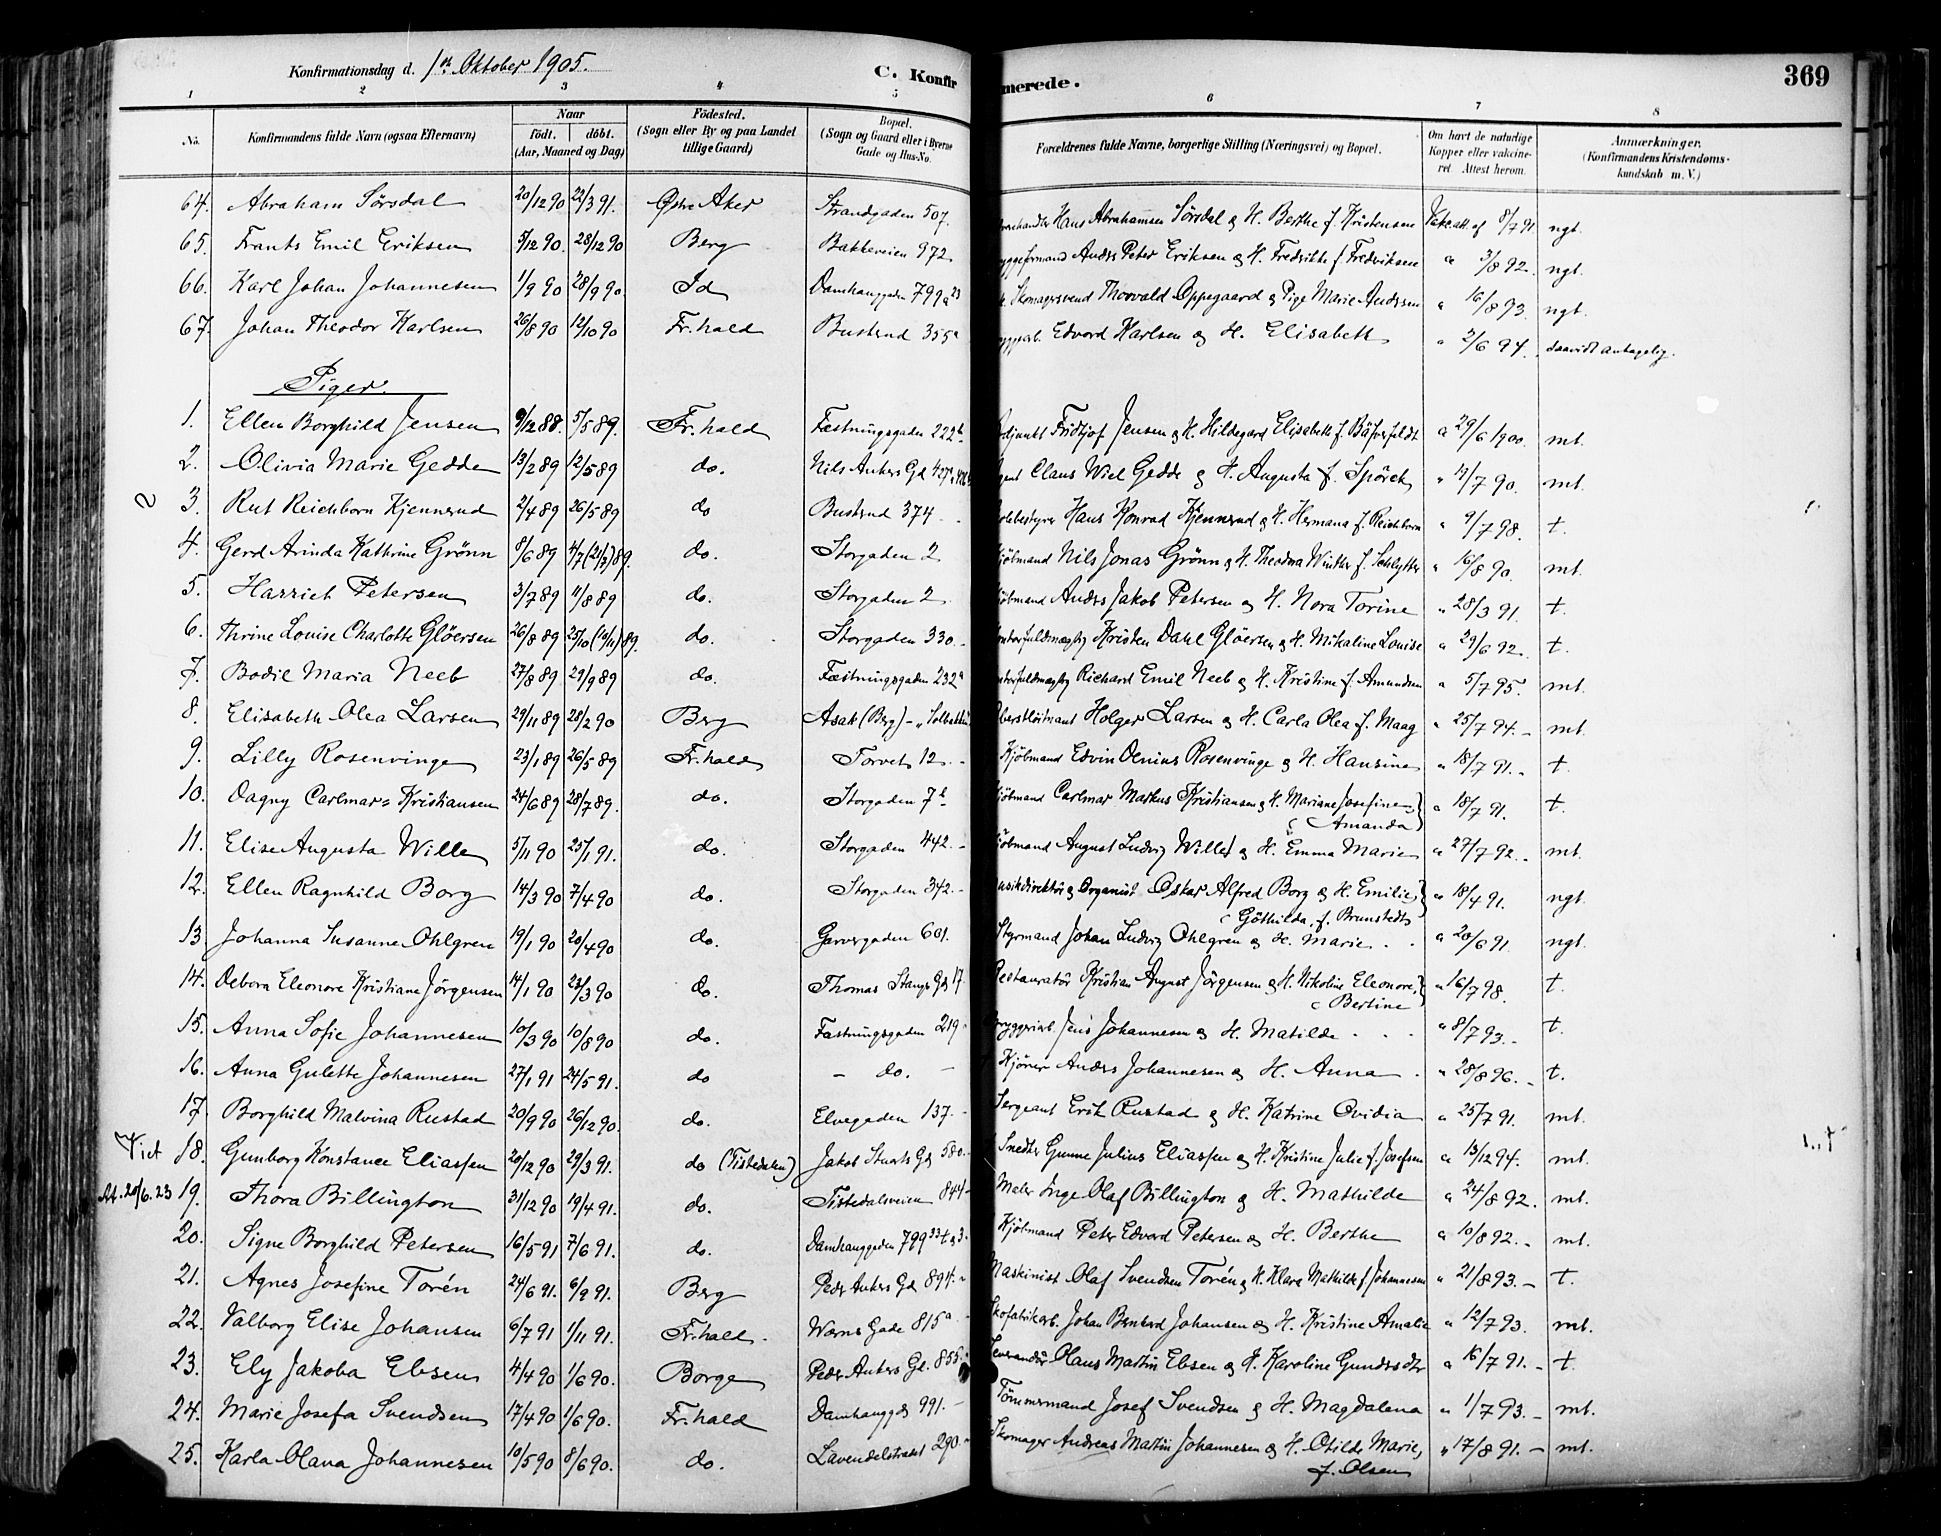 Konfirmationsdag d. 1ste Oktober 1905. C. Konfirmerede. 369
1 2 3 4 5 6 7 8
No. Konfirmandens fulde Navn (ogsaa Efternavn) Naar födt. döbt. (Aar, Maaned og Dag) Födested. (Sogn eller By og paa Landet tillige Gaard) Bopæl. (Sogn og Gaard eller i Byerne Gade og Hus-No. Forældrenes fulde Navne, borgerlige Stilling (Næringsvei) og Bopæl. Om havt de naturlige Kopper eller vakcineret. Attest herom. Anmærkninger. (Konfirmandens Kristendomskundskab m. V.)
64. Abraham Sörsdal 20/12 90 22/3 91. Östre Aker Strandgaden 507. Hans Abrahamsen Sörsdal og H. Berthe f. Kristensen Vakc.att. af 8/7 91 ngt.
65. Frants Emil Eriksen 5/12 90. 28/12 90 Berg Bakkeveien 972 Anders Peter Eriksen og H. Fredrikke f. Fredriksen " 3/8 92. ngt.
66. Karl Johan Johannesen 1/9 90 28/9 90. Id Damhauggaden 799a 23 Skomagersvend Thorvald Oppegaard og Pige Marie Andersen " 16/8 93. ngt.
67. Johan Theodor Karlsen 26/8 90 12/10 90 Fr.hald Busterud 355a Edvard Karlsen og H. Elisabeth " 2/6 94. saavidt antagelig.
Piger.
1. Ellen Borghild Jensen 9/12 88. 5/5 89. Fr.hald Fæstningsgaden 222b Adjunkt Fridtjof Jensen og H. Hildegard Elisabeth f. " 29/6 1900. mt.
2. Olivia Marie Gedde 13/2 89 12/5 89 do. Nils Ankers Gd Agent Claus Wiel Gedde og H. Augusta f. Spörck " 17/7 90. mt.
3. Rut Reichborn Kjennerud 2/4 89 26/5 89 do Busterud 374 Skolebestyrer Hans Konrad Kjennerud og H. Hermana f. Reichborn " 9/7 98. t.
4. Gerd Arinda Kathrine Grönn 8/6 89 4/7 (21/7) 89. do. Storgaden 2 Kjöbmand Nils Jonas Grönn og H. Theodora Winther f. Schlytter " 16/8 90. mt.
5. Harriet Petersen 3/7 89 11/8 89 do. Storgaden 2. Kjöbmand Anders Jakob Petersen og H. Nora Torine " 28/3 91. t.
6. Thrine Louise Charlotte Glöersen 26/8 89 25/10 (10/11) 89. do. Storgaden 330. Kontorfuldmægtig Kristen Dahl Glöersen og H. Mikaline Louise " 29/6 92. t.
7. Bodil Maria Neeb 27/8 89 29/9 89 do. Fæstningsgaden 232a Kontorfuldmægtig Richard Emil Neeb og H. Kristine f. Amundsen " 5/7 95. mt.
8. Elisabeth Olea Larsen 29/11 89 28/2 90 Berg Asak (Berg) Oberstlöitnant Holger Larsen og H. Carla Olea f. Maag " 25/7 94. mt.
9. Lilly Rosenvinge 23/1 89 26/5 89 Fr.hald Torvet 12. Kjöbmand Edvin Olenius Rosenvinge og H. Hansine " 18/7 91. t.
10. Dagny Carlmar=Kristiansen 24/6 89 28/7 89. do. Storgaden 7b Kjöbmand Carlmar Markus Kristiansen og H. Mariane Josefine Amanda " 18/7 91. t.
11. Elise Augusta Wille 5/11 90 25/1 91. do. Storgaden 442. Kjöbmand August Ludvig Wille og H. Emma Marie " 27/7 92. mt.
12. Ellen Ragnhild Borg 14/3 90 7/4 90 do. Storgaden 342. Musikdirektör og Organist Oskar Alfred Borg og H. Emilie Göthilda, f. Brunstedt " 18/4 91. ngt.
13 Johanna Susanne Ohlgren 19/1 90 20/4 90 do. Garvergaden 601. Styrmand Johan Ludvig Ohlgren og H. Marie " 20/6 91. ngt.
14. Debora Eleonore Kristiane Jörgensen 14/1 90 23/3 90 do. Thomas Stangs Gd 17. Restauratör Kristian August Jörgensen og H. Nikoline Eleonore, Bertine " 16/7 98. t.
15. Anna Sofie Johannesen 10/3 90 10/8 90 do. Fæstningsgaden 219 Bryggeriarb. Jens Johannesen og H. Matilde " 8/7 93. t.
16. Anna Gulette Johannesen 27/1 91 24/5 91. do - do. - Kjörer Anders Johannesen og H. Anna " 28/8 96. t.
17. Borghild Malvina Rustad 20/9 90 26/12 90. do. Elvegaden 137. Sergeant Erik Rustad og H. Katrine Ovidia " 25/7 91. mt.
Viet 18. Gunborg Konstance Eliassen 20/12 90 29/3 91. do (Tistedalen) Jakob Stuarts Gd 580. Snedker Gunne Julius Eliassen og H. Kristine Julie f. Josefsen " 13/12 94. mt.
At. 20/6. 23 19. Thora Billington 31/12 90 19/4 91. do. Tistedalsveien 844 Maler Inge Olaf Billington og H. Mathilde " 24/8 92. mt.
20. Signe Borghild Petersen 16/5 91 7/6 91. do. Damhauggaden 799 Kjöbmand Peter Edvard Petersen og H. Berthe " 10/8 92. mt.
21. Agnes Josefine Torén 24/6 91. 6/9 91. Berg Peder Ankers Gd 894. Maskinist Olaf Svendsen Torén og H. Klara Mathilde f. Johannesen " 21/8 93. t.
22. Valborg Elise Johansen 6/7 91 1/11 91. Fr.hald. Wærns Gade 815a Skofabrikarb. Johan Bernhard Johansen og H. Kristine Amalie " 12/7 93. mt.
23. Ely Jakoba Ebsen 4/4 90 1/6 90. Borge Peder Ankers Gd. 855. Leverandör Olaus Martin Ebsen og H. Karoline Gundersdtr " 16/7 91. t.
24. Marie Josefa Svendsen 17/4 90 1/6 90. Fr.hald Damhauggd 991. Tömmermand Josef Svendsen og H. Magdalena " 1/7 93. mt.
25. Karla Olava Johannesen 10/5 90 8/6 90. do. Lavendelstrædet 290. Skomager Andreas Martin Johannesen og H. Otilde Marie, f. Olsen " 17/8 91. mt.